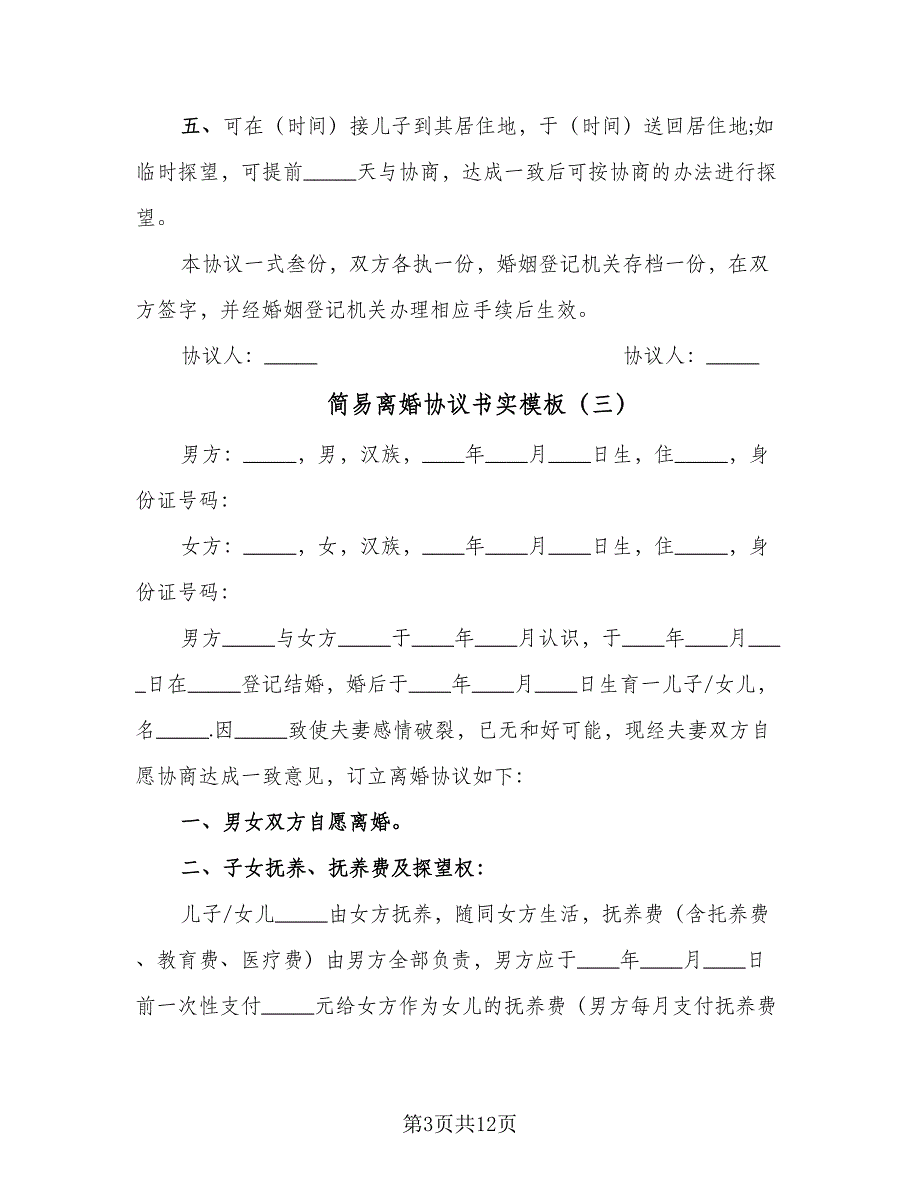 五、可在（时间）接儿子到其居住地，于（时间）送回居住地;如
临时探望，可提前_____天与协商，达成一致后可按协商的办法进行探
望。
本协议一式叁份，双方各执一份，婚姻登记机关存档一份，在双
方签字，并经婚姻登记机关办理相应手续后生效。
协议人：_____ 协议人：_____
简易离婚协议书实模板（三）
男方：_____，男，汉族，____年____月____日生，住_____，身
份证号码：
女方：_____，女，汉族，____年____月____日生，住_____，身
份证号码：
男方_____与女方_____于____年____月认识，于____年____月___
_日在_____登记结婚，婚后于____年____月____日生育一儿子/女儿，
名_____.因_____致使夫妻感情破裂，已无和好可能，现经夫妻双方自
愿协商达成一致意见，订立离婚协议如下：
一、男女双方自愿离婚。
二、子女抚养、抚养费及探望权：
儿子/女儿_____由女方抚养，随同女方生活，抚养费（含托养费
、教育费、医疗费）由男方全部负责，男方应于____年____月____日
前一次性支付_____元给女方作为女儿的抚养费（男方每月支付抚养费
第3页共12页